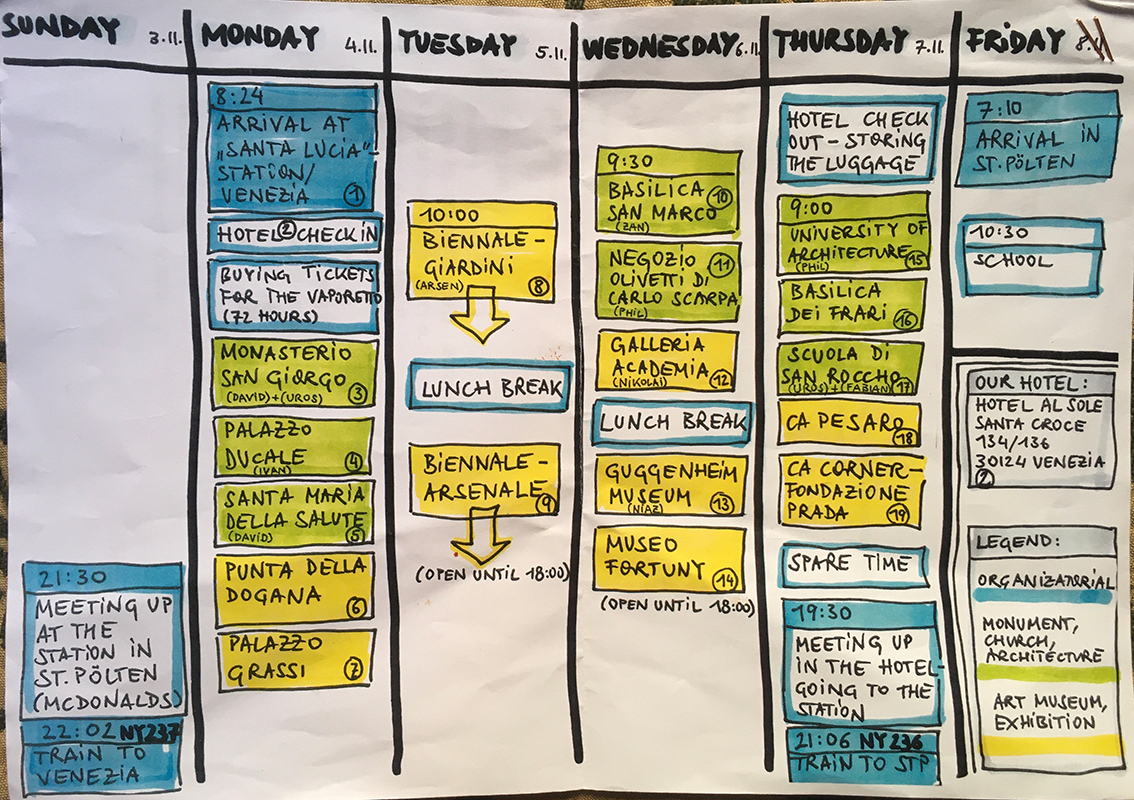 SUNDAY 3.11.
21:30
MEETING UP
AT THE
STATION IN
ST. PÖLTEN
(MCDONALDS)
22:02 NY237
TRAIN TO
VENEZIA
MONDAY 4.11.
8:24
ARRIVAL AT
„SANTA LUCIA"-
STATION/
VENEZIA 1
HOTEL 2 CHECK IN
BUYING TICKETS
FOR THE VAPORETTO
(72 HOURS)
MONASTERIO
SAN GIORGO
(DAVID)+(UROS) 3
PALAZZO
DUCALE
(IVAN) 4
SANTA MARIA
DELLA SALUTE
(DAVID) 5
PUNTA DELLA
DOGANA 6
PALAZZO
GRASSI 7
TUESDAY 5.11.
10:00
BIENNALE-
GIARDINI
(ARSEN) 8
LUNCH BREAK
BIENNALE-
ARSENALE 9
(OPEN UNTIL 18:00)
WEDNESDAY 6.11
9:30
BASILICA 10
SAN MARCO
(ZAN)
NEGOZIO 11
OLIVETTI DI
CARLO SCARPA
(PHIL)
GALLERIA
ACADEMIA
(NIKOLAI) 12
LUNCH BREAK
GUGGENHEIM
MUSEUM 13
(NIAZ)
MUSEO
FORTUNY 14
(OPEN UNTIL 18:00)
THURSDAY 7.11.
HOTEL CHECK
OUT - STORING
THE LUGGAGE
9:00
UNIVERSITY OF
ARCHITECTURE 15
(PHIL)
BASILICA
DEI FRARI 16
SCUOLA DI
SAN ROCCHO
(UROS)+(FABIAN) 17
CA PESARO 18
CA CORNER-
FONDAZIONE
PRADA 19
SPARE TIME
19:30
MEETING UP
IN THE HOTEL-
GOING TO THE
STATION
21:06 NY236
TRAIN TO STP
FRIDAY 8.
7:10
ARRIVAL IN
ST. PÖLTEN
10:30
SCHOOL
OUR HOTEL:
HOTEL AL SOLE
SANTA CROCE
134/136
30124 VENEZIA
2
LEGEND:
ORGANIZATORIAL
MONUMENT,
CHURCH,
ARCHITECTURE
ART MUSEUM,
EXHIBITION